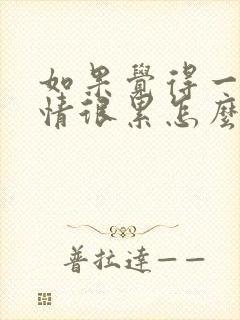 如果覺得一
情很累怎麼
普拉達——